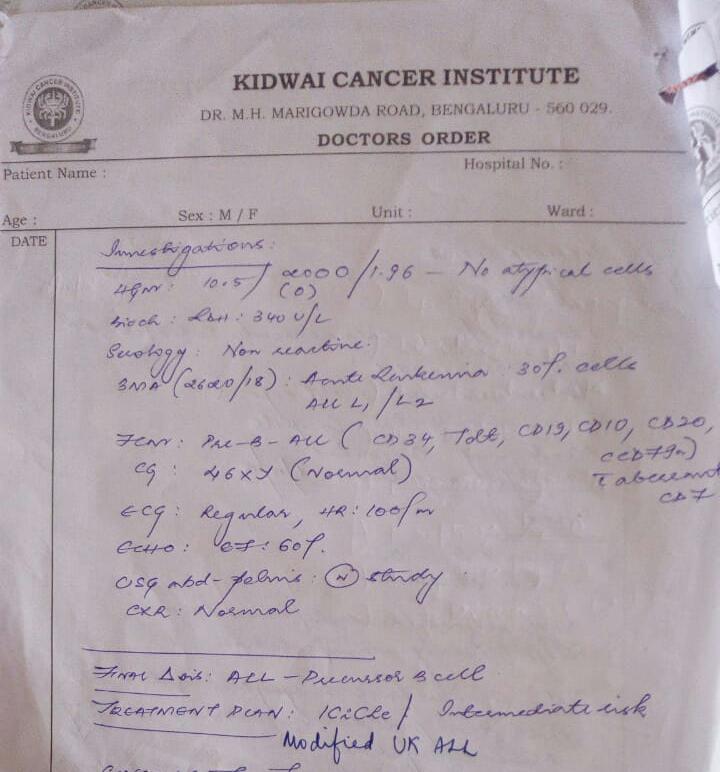 KIDWAI CANCER INSTITUTE
DR. M.H. MARIGOWDA ROAD, BENGALURU - 560 029.
DOCTORS ORDER
Patient Name :
Hospital No. :
Age : Sex : M / F Unit : Ward :
DATE
Investigations:
10.5 / 2000 (0) / 1.96 - No atypical cells
Bioch : LDH : 340 U/L
Serology : Non reactive.
BMA (2620/18) : Acute Leukemia 30% cells
ALL L1/L2
FCM : Pre-B-ALL ( CD34, Tdt, CD19, CD10, CD20,
cCD79a)
aberrant
CD7
CG : 46XY (Normal)
ECG : Regular, HR: 100/m
ECHO : EF: 60%.
USG abd-pelvis : (N) study
CXR : Normal
FINAL : ALL - Precursor B cell
TREATMENT PLAN : ICiCLe / Intermediate risk
Modified UK ALL